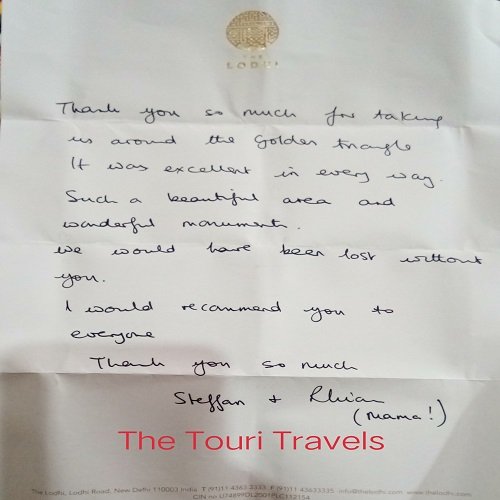 THE
LODHI
Thank you so much for taking
us around the Golden triangle
It was excellent in every way.
Such a beautiful area and
wonderful monuments.
We would have been lost without
you.
I would recommend you to
everyone
Thank you so much
Steffan + Rhian
(Mama!)
The Touri Travels
The Lodhi, Lodhi Road, New Delhi 110003 India T (91)11 4363 3333 F (91)11 43633335 info@thelodhi.com www.thelodhi.com
CIN no